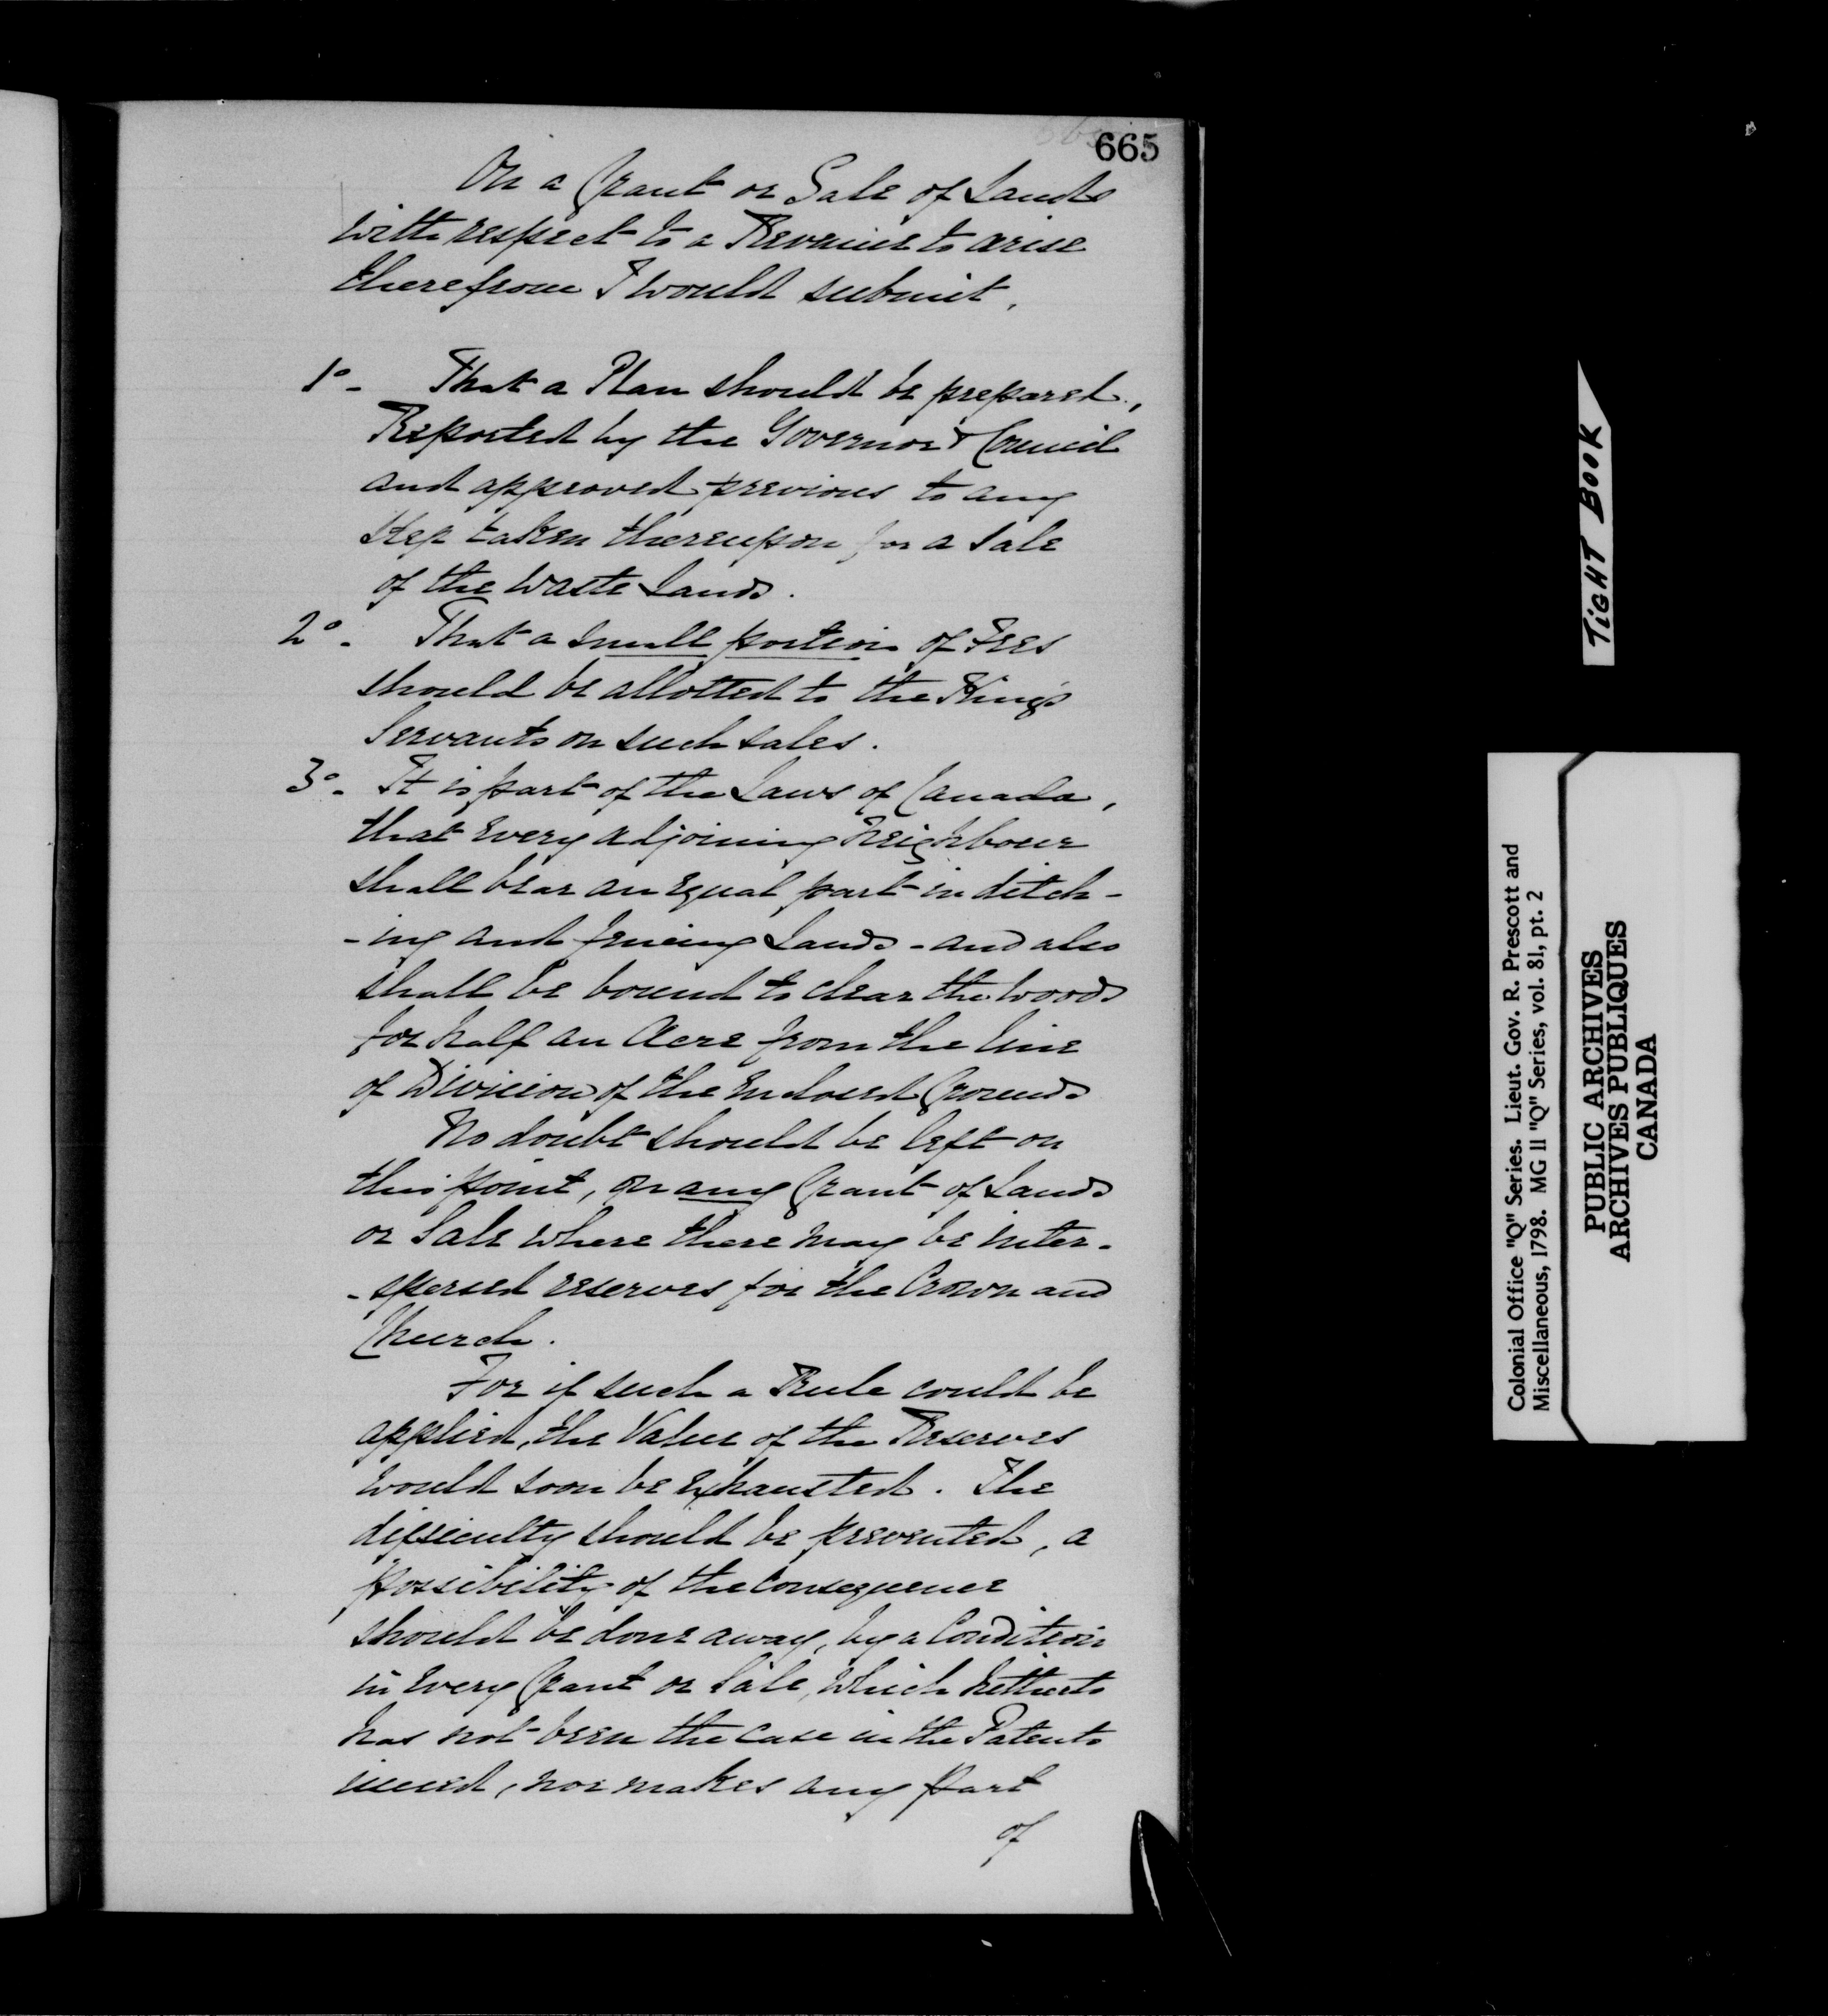 665
On a Grant or Sale of Lands
with respect to a Revenue to arise
therefrom I would submit,
1o - That a Plan should be prepared,
Reported by the Governor & Council
and approved previous to any
step taken thereupon for a Sale
of the Waste Lands.
2o - That a small portion of Fees
should be allotted to the King's
Servants on such sales.
3o - It is part of the Laws of Canada,
that Every adjoining Neighbour
shall bear an Equal part in ditch-
-ing and fencing Lands - and also
shall be bound to clear the Woods
for half an Acre from the line
of Division of the Enclosed Grounds
No doubt should be left on
this point, on any Grant of Lands
or Sale where there may be inter-
-spersed reserves for the Crown and
Church.
For if such a Rule could be
applied, the Value of the Reserves
would soon be Exhausted. The
difficulty should be prevented, a
possibility of the Consequence
should be done away, by a Condition
in Every Grant or Sale, which hitherto
has not been the case in the Patents
issued, nor makes any part
of
TiGHT BOOK
Colonial Office "Q" Series. Lieut. Gov. R. Prescott and
Miscellaneous, 1798. MG 11 "Q" Series, vol. 81, pt. 2
PUBLIC ARCHIVES
ARCHIVES PUBLIQUES
CANADA